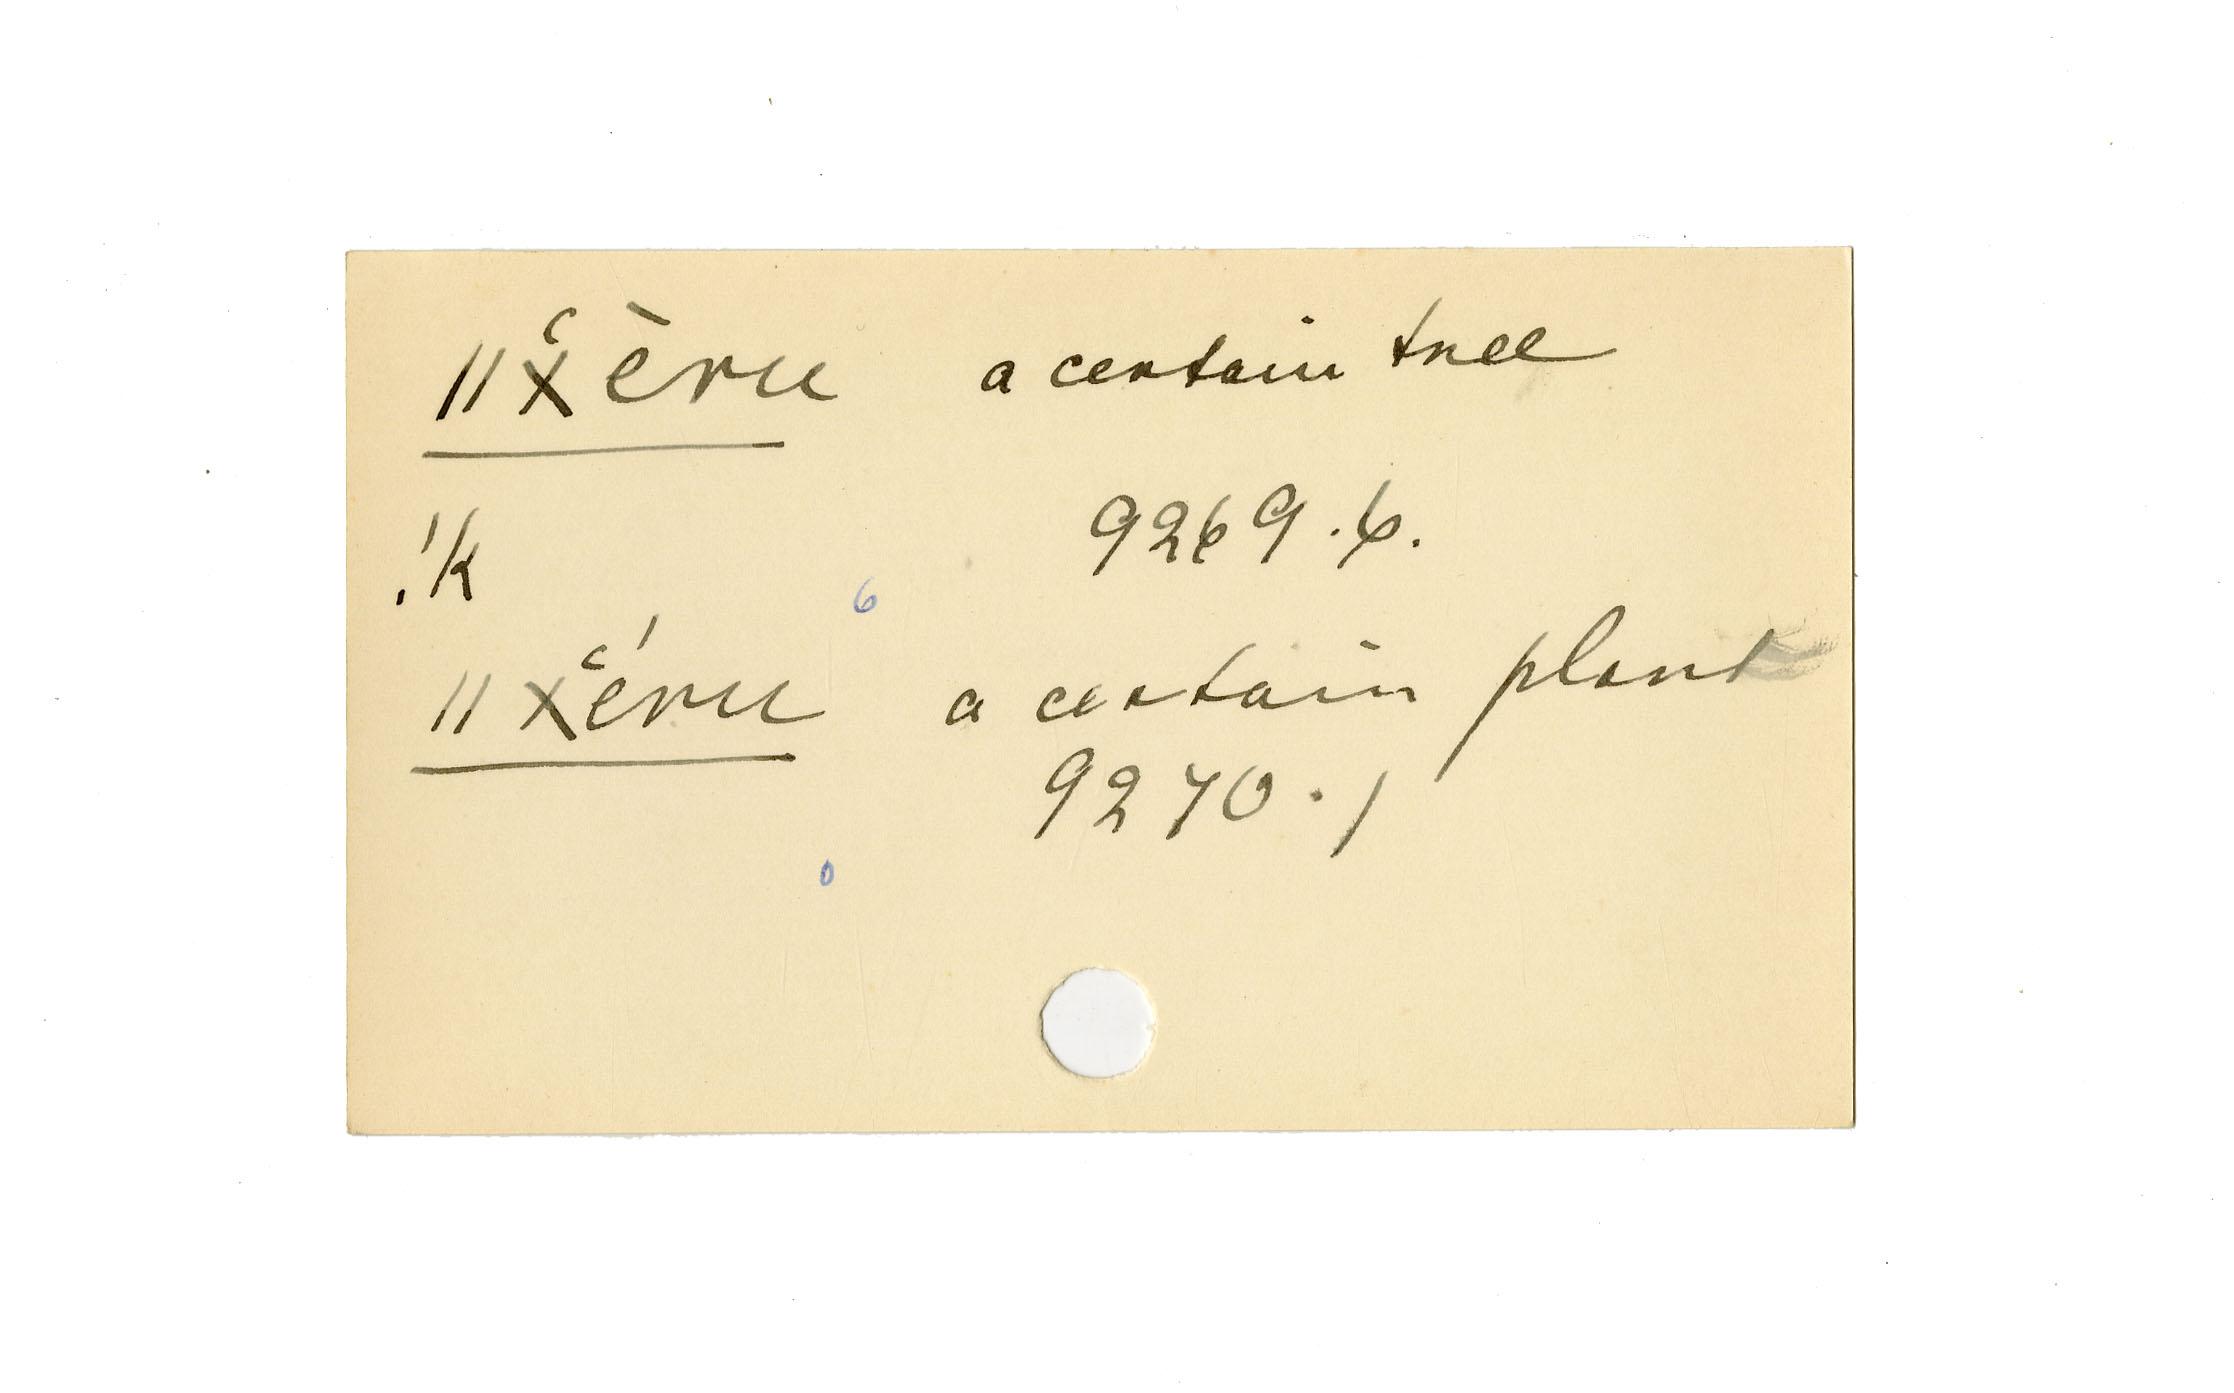 ǁx̔èru a certain tree
9269.6.
!k
6
ǁx̔éru a certain plant
9270.1
0